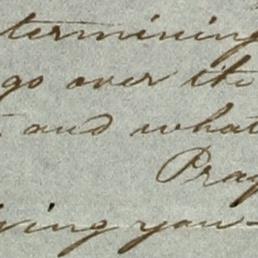 termining
go over the
and what
Pray
ving you